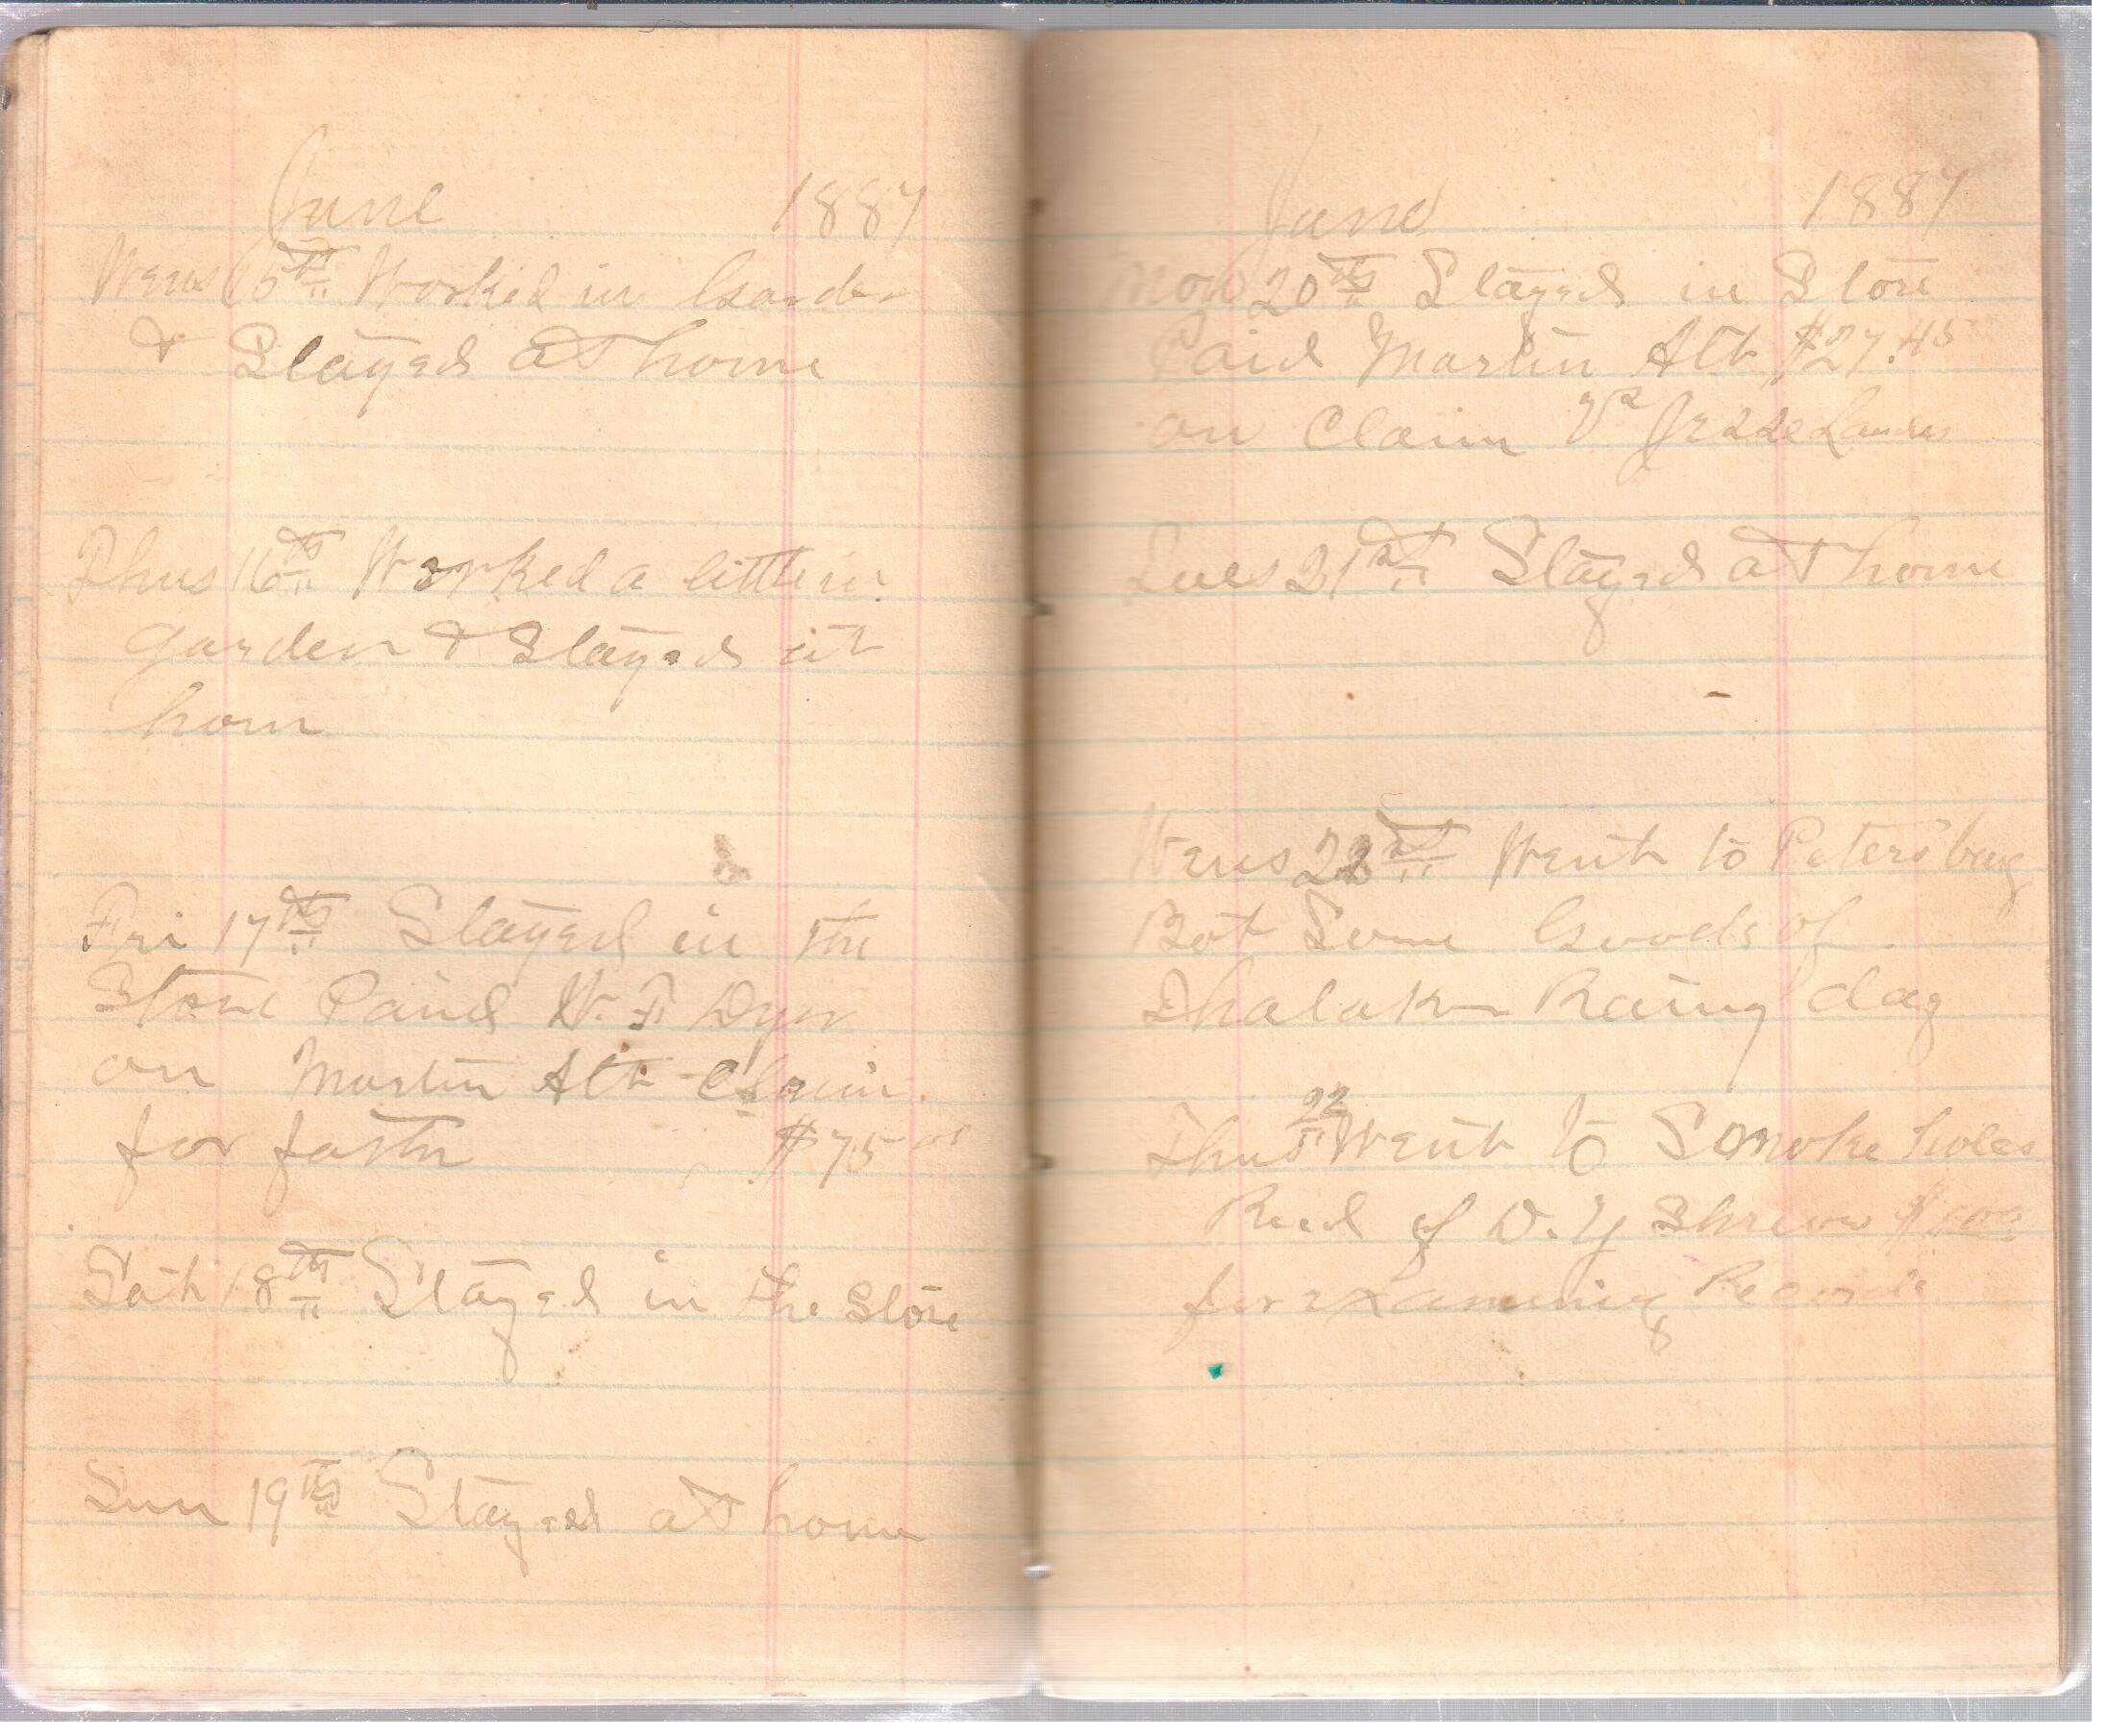 June 1887
Wens 15th Worked in Garden
& Stayed at home
Thus 16th Worked a little in
garden & Stayed at
hom
Fri 17th Stayed in the
Store Paid W. F. Dyer
on Martin Alt Claim
for fath $75.00
Sat 18th Stayed in the Store
Sun 19th Stayed at home
June 1887
Mon 20th Stayed in Store
Paid Martin Alt $27.45
on Claim Jesse
Tues 21st Stayed at home
Wens 22 Went to Petersburg
Bot Some Goods of
Rainy day
Thus 22 Went to Smoke holes
Recd of D. Y Shreve
for examining Records